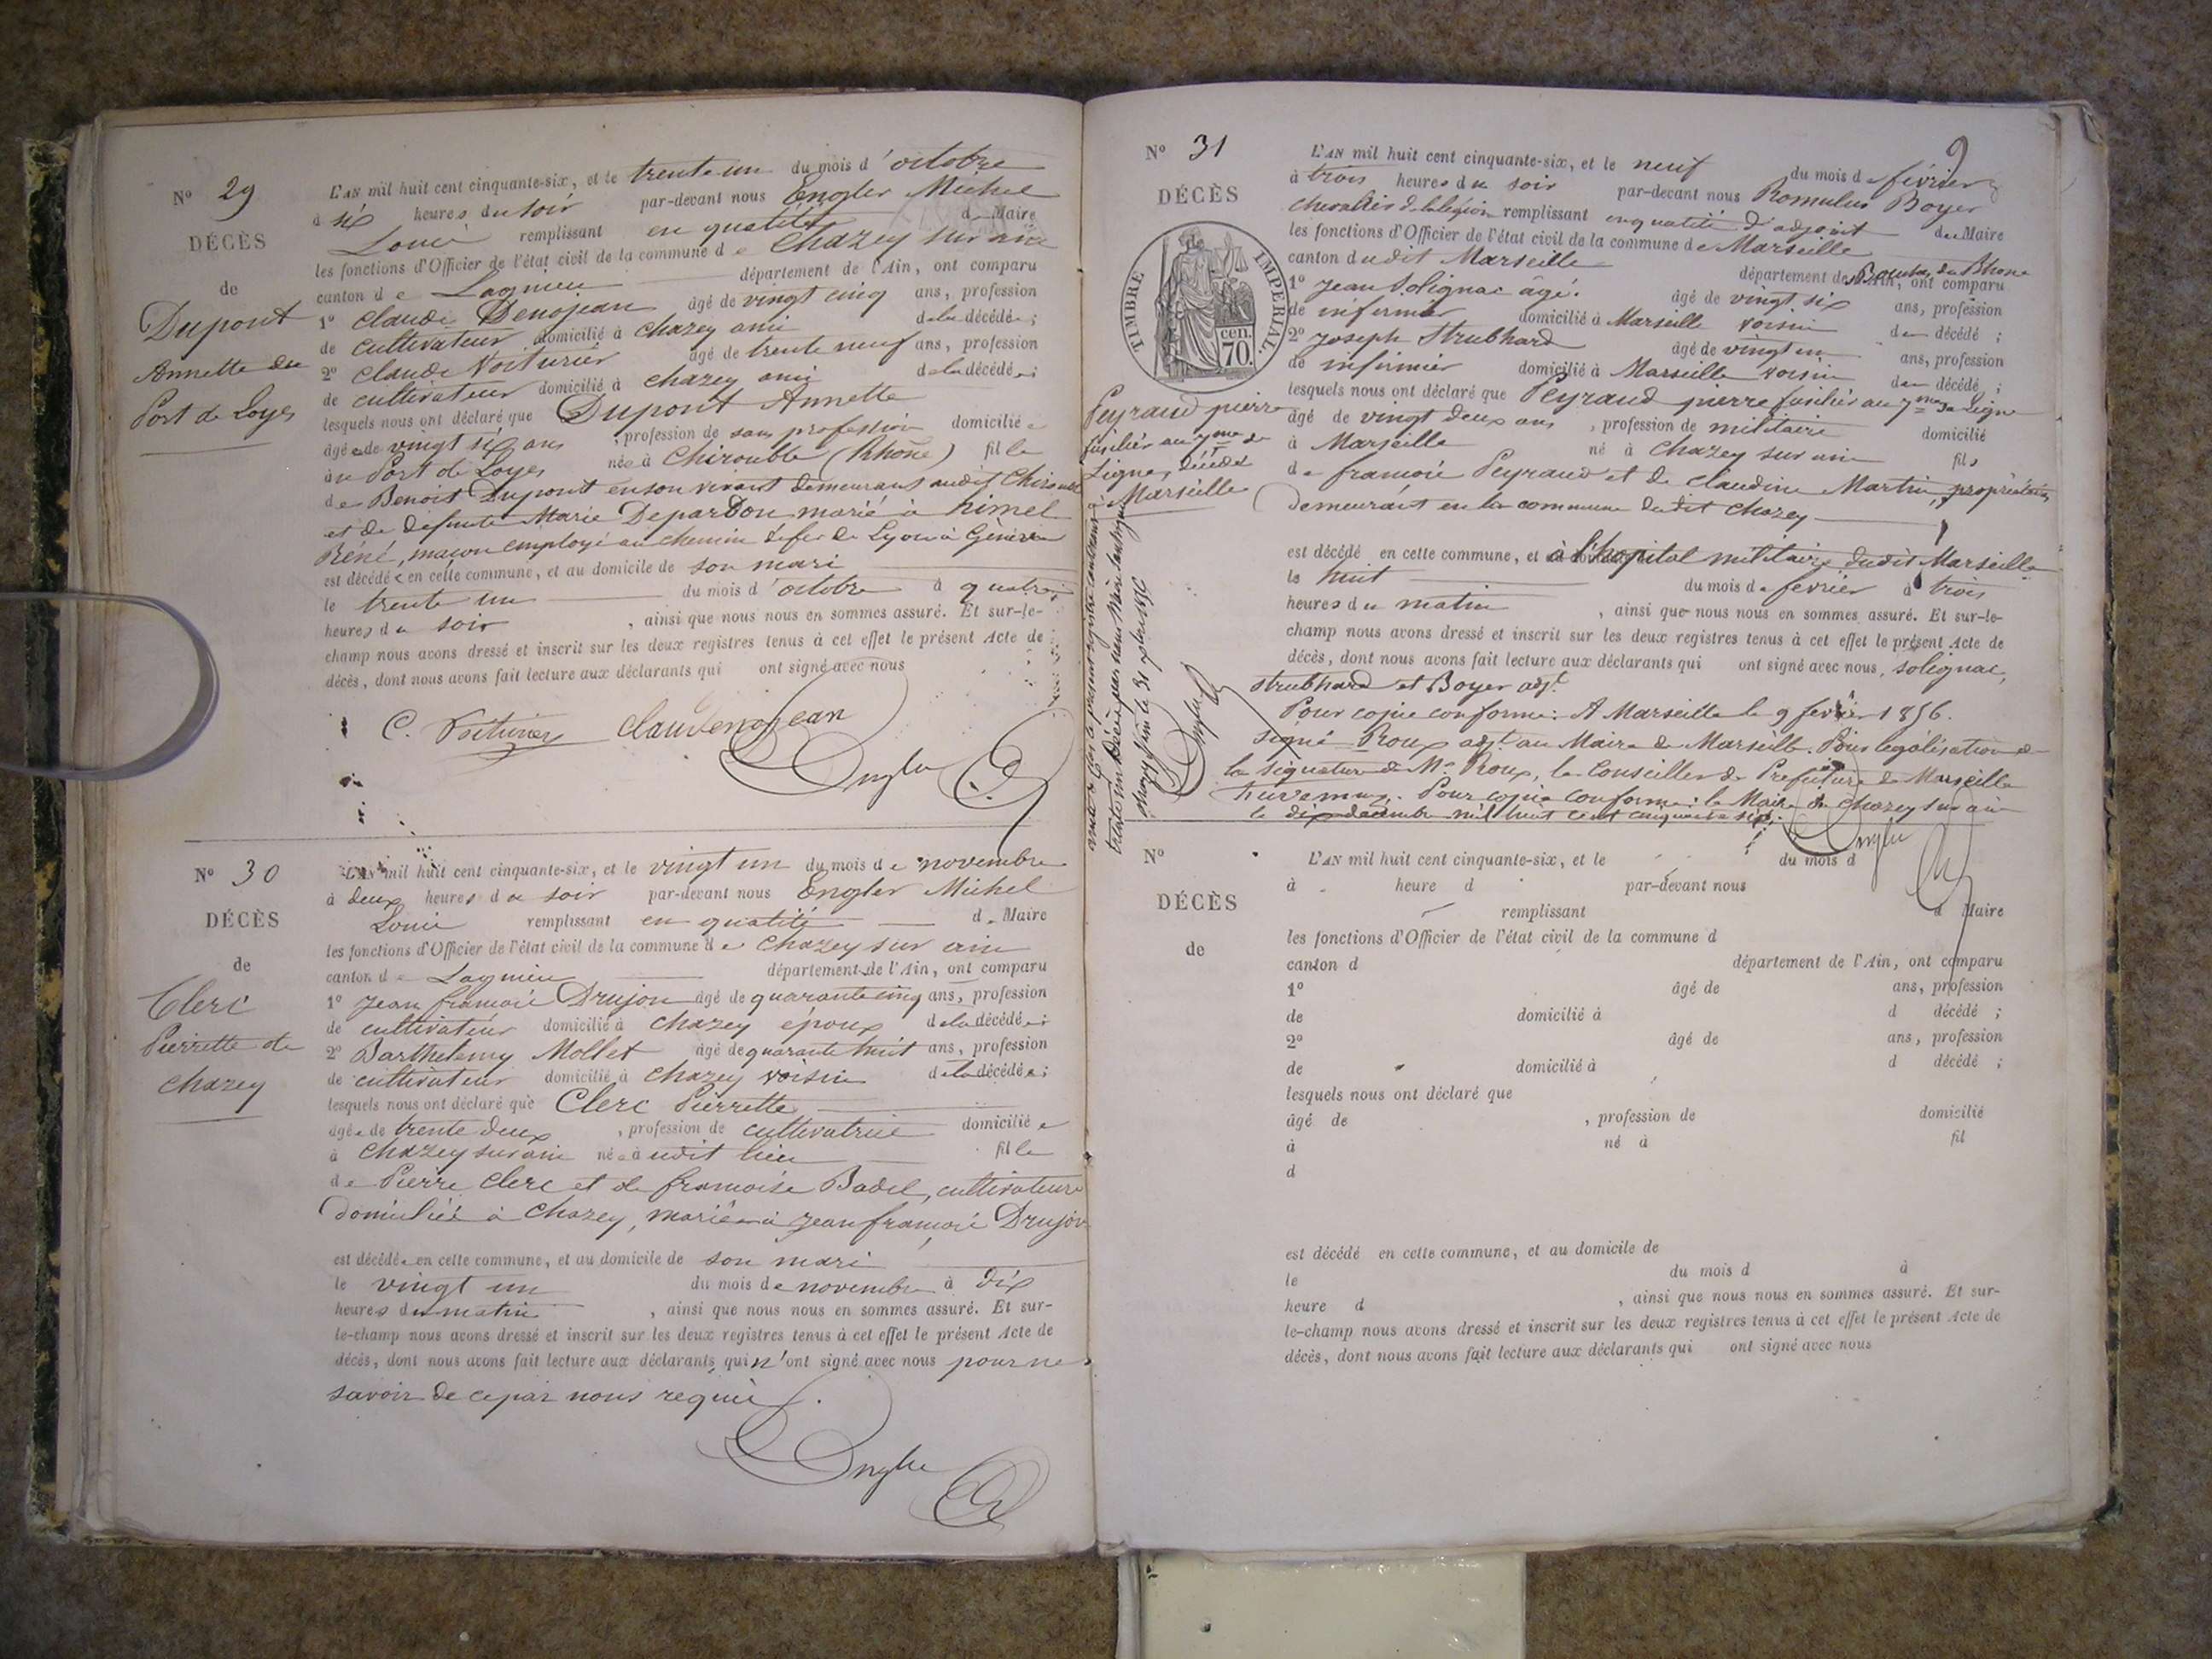 N° 29
DÉCÈS
de
Dupont
Annette du
Port de Loyes
L'AN mil huit cent cinquante-six, et le trente un du mois d'octobre
à six heures du soir par-devant nous Engler Michel
Louis remplissant en qualité de Maire
les fonctions d'Officier de l'état civil de la commune de Chazey sur ain
canton de Lagnieu département de l'Ain, ont comparu
1° Claude Denojean âgé de vingt cinq ans, profession
de cultivateur domicilié à Chazey ami de la décédée ;
2° Claude Voiturier âgé de trente neuf ans, profession
de cultivateur domicilié à Chazey ami de la décédée ;
lesquels nous ont déclaré que Dupont Annette
âgée de vingt six ans , profession de sans profession domiciliée
au Port de Loyes née à Chirouble (Rhône) fille
de Benoit Dupont en son vivant demeurant audit Chirouble
et de defunte Marie Depardon marié à himel
Réné, maçon employé au chemin de fer de Lyon à Génève
est décédée en cette commune, et au domicile de son mari
le trente un du mois d'octobre à quatre
heures du soir , ainsi que nous nous en sommes assuré. Et sur-le-
champ nous avons dressé et inscrit sur les deux registres tenus à cet effet le présent Acte de
décès, dont nous avons fait lecture aux déclarants qui ont signé avec nous
C. Voiturier Claudenojean
Engler
N° 30
DÉCÈS
de
Clerc
Pierrette de
Chazey
L'AN mil huit cent cinquante-six, et le vingt un du mois de novembre
à deux heures du soir par-devant nous Engler Michel
Louis remplissant en qualité de Maire
les fonctions d'Officier de l'état civil de la commune de Chazey sur ain
canton de Lagnieu département de l'Ain, ont comparu
1° Jean françois Drujon âgé de quarante cinq ans, profession
de cultivateur domicilié à Chazey époux de la décédée ;
2° Barthelemy Mollet âgé de quarante huit ans, profession
de cultivateur domicilié à Chazey voisin de la décédée ;
lesquels nous ont déclaré que Clerc Pierrette
âgée de trente deux , profession de cultivatrice domiciliée
à Chazey sur ain née audit lieu fille
de Pierre Clerc et de françoise Badel, cultivateurs
domiciliés à Chazey, mariée à jean françois Drujon
est décédée en cette commune, et au domicile de son mari
le vingt un du mois de novembre à dix
heures du matin , ainsi que nous nous en sommes assuré. Et sur-
le-champ nous avons dressé et inscrit sur les deux registres tenus à cet effet le présent Acte de
décès, dont nous avons fait lecture aux déclarants qui n'ont signé avec nous pour ne
savoir de ce par nous requis.
Engler
9
N° 31
DÉCÈS
TIMBRE IMPERIAL.
70. cen.
Peyraud pierre
fusilier au 7me de
Ligne, décédé
à Marseille
L'AN mil huit cent cinquante-six, et le neuf du mois de février
à trois heures du soir par-devant nous Romulus Boyer
chevalier de la légion remplissant en qualité d'adjoint du Maire
les fonctions d'Officier de l'état civil de la commune de Marseille
canton dudit Marseille département des Bouches du Rhone, ont comparu
1° jean Solignac âgé. âgé de vingt six ans, profession
de infirmier domicilié à Marseille voisin du décédé ;
2° joseph Strubhard âgé de vingt un ans, profession
de infirmier domicilié à Marseille voisin du décédé ;
lesquels nous ont déclaré que Peyraud pierre fusilier au 7me de Ligne
âgé de vingt deux ans , profession de militaire domicilié
à Marseille né à Chazey sur ain fils
de françois Peyraud et de claudine Martin, propriétaires
demeurant en la commune dudit Chazey
est décédé en cette commune, et à l'hopital militaire dudit Marseille
le huit du mois de fevrier à trois
heures du matin , ainsi que nous nous en sommes assuré. Et sur-le-
champ nous avons dressé et inscrit sur les deux registres tenus à cet effet le présent Acte de
décès, dont nous avons fait lecture aux déclarants qui ont signé avec nous, solignac,
strubhard et Boyer adjt.
Pour copie conforme: A Marseille le 9 fevrier 1856.
signé Roux adjt au Maire de Marseille. Pour legalisation de
la signature de Mr Roux, le Conseiller de Prefecture de Marseille
. Pour copie conforme: le Maire de Chazey sur ain
le dix decembre mil huit cent cinquante six.
Engler
present registre contenant
trente un décès par nous Maire soussigné
Chazey s/ ain le 31 Xbre 1856
Engler
N°
DÉCÈS
de
L'AN mil huit cent cinquante-six, et le du mois d
à heure d par-devant nous
remplissant d Maire
les fonctions d'Officier de l'état civil de la commune d
canton d département de l'Ain, ont comparu
1° âgé de ans, profession
de domicilié à d décédé ;
2° âgé de ans, profession
de domicilié à d décédé ;
lesquels nous ont déclaré que
âgé de , profession de domicilié
à né à fil
d
est décédé en cette commune, et au domicile de
le du mois d à
heure d , ainsi que nous nous en sommes assuré. Et sur-
le-champ nous avons dressé et inscrit sur les deux registres tenus à cet effet le présent Acte de
décès, dont nous avons fait lecture aux déclarants qui ont signé avec nous